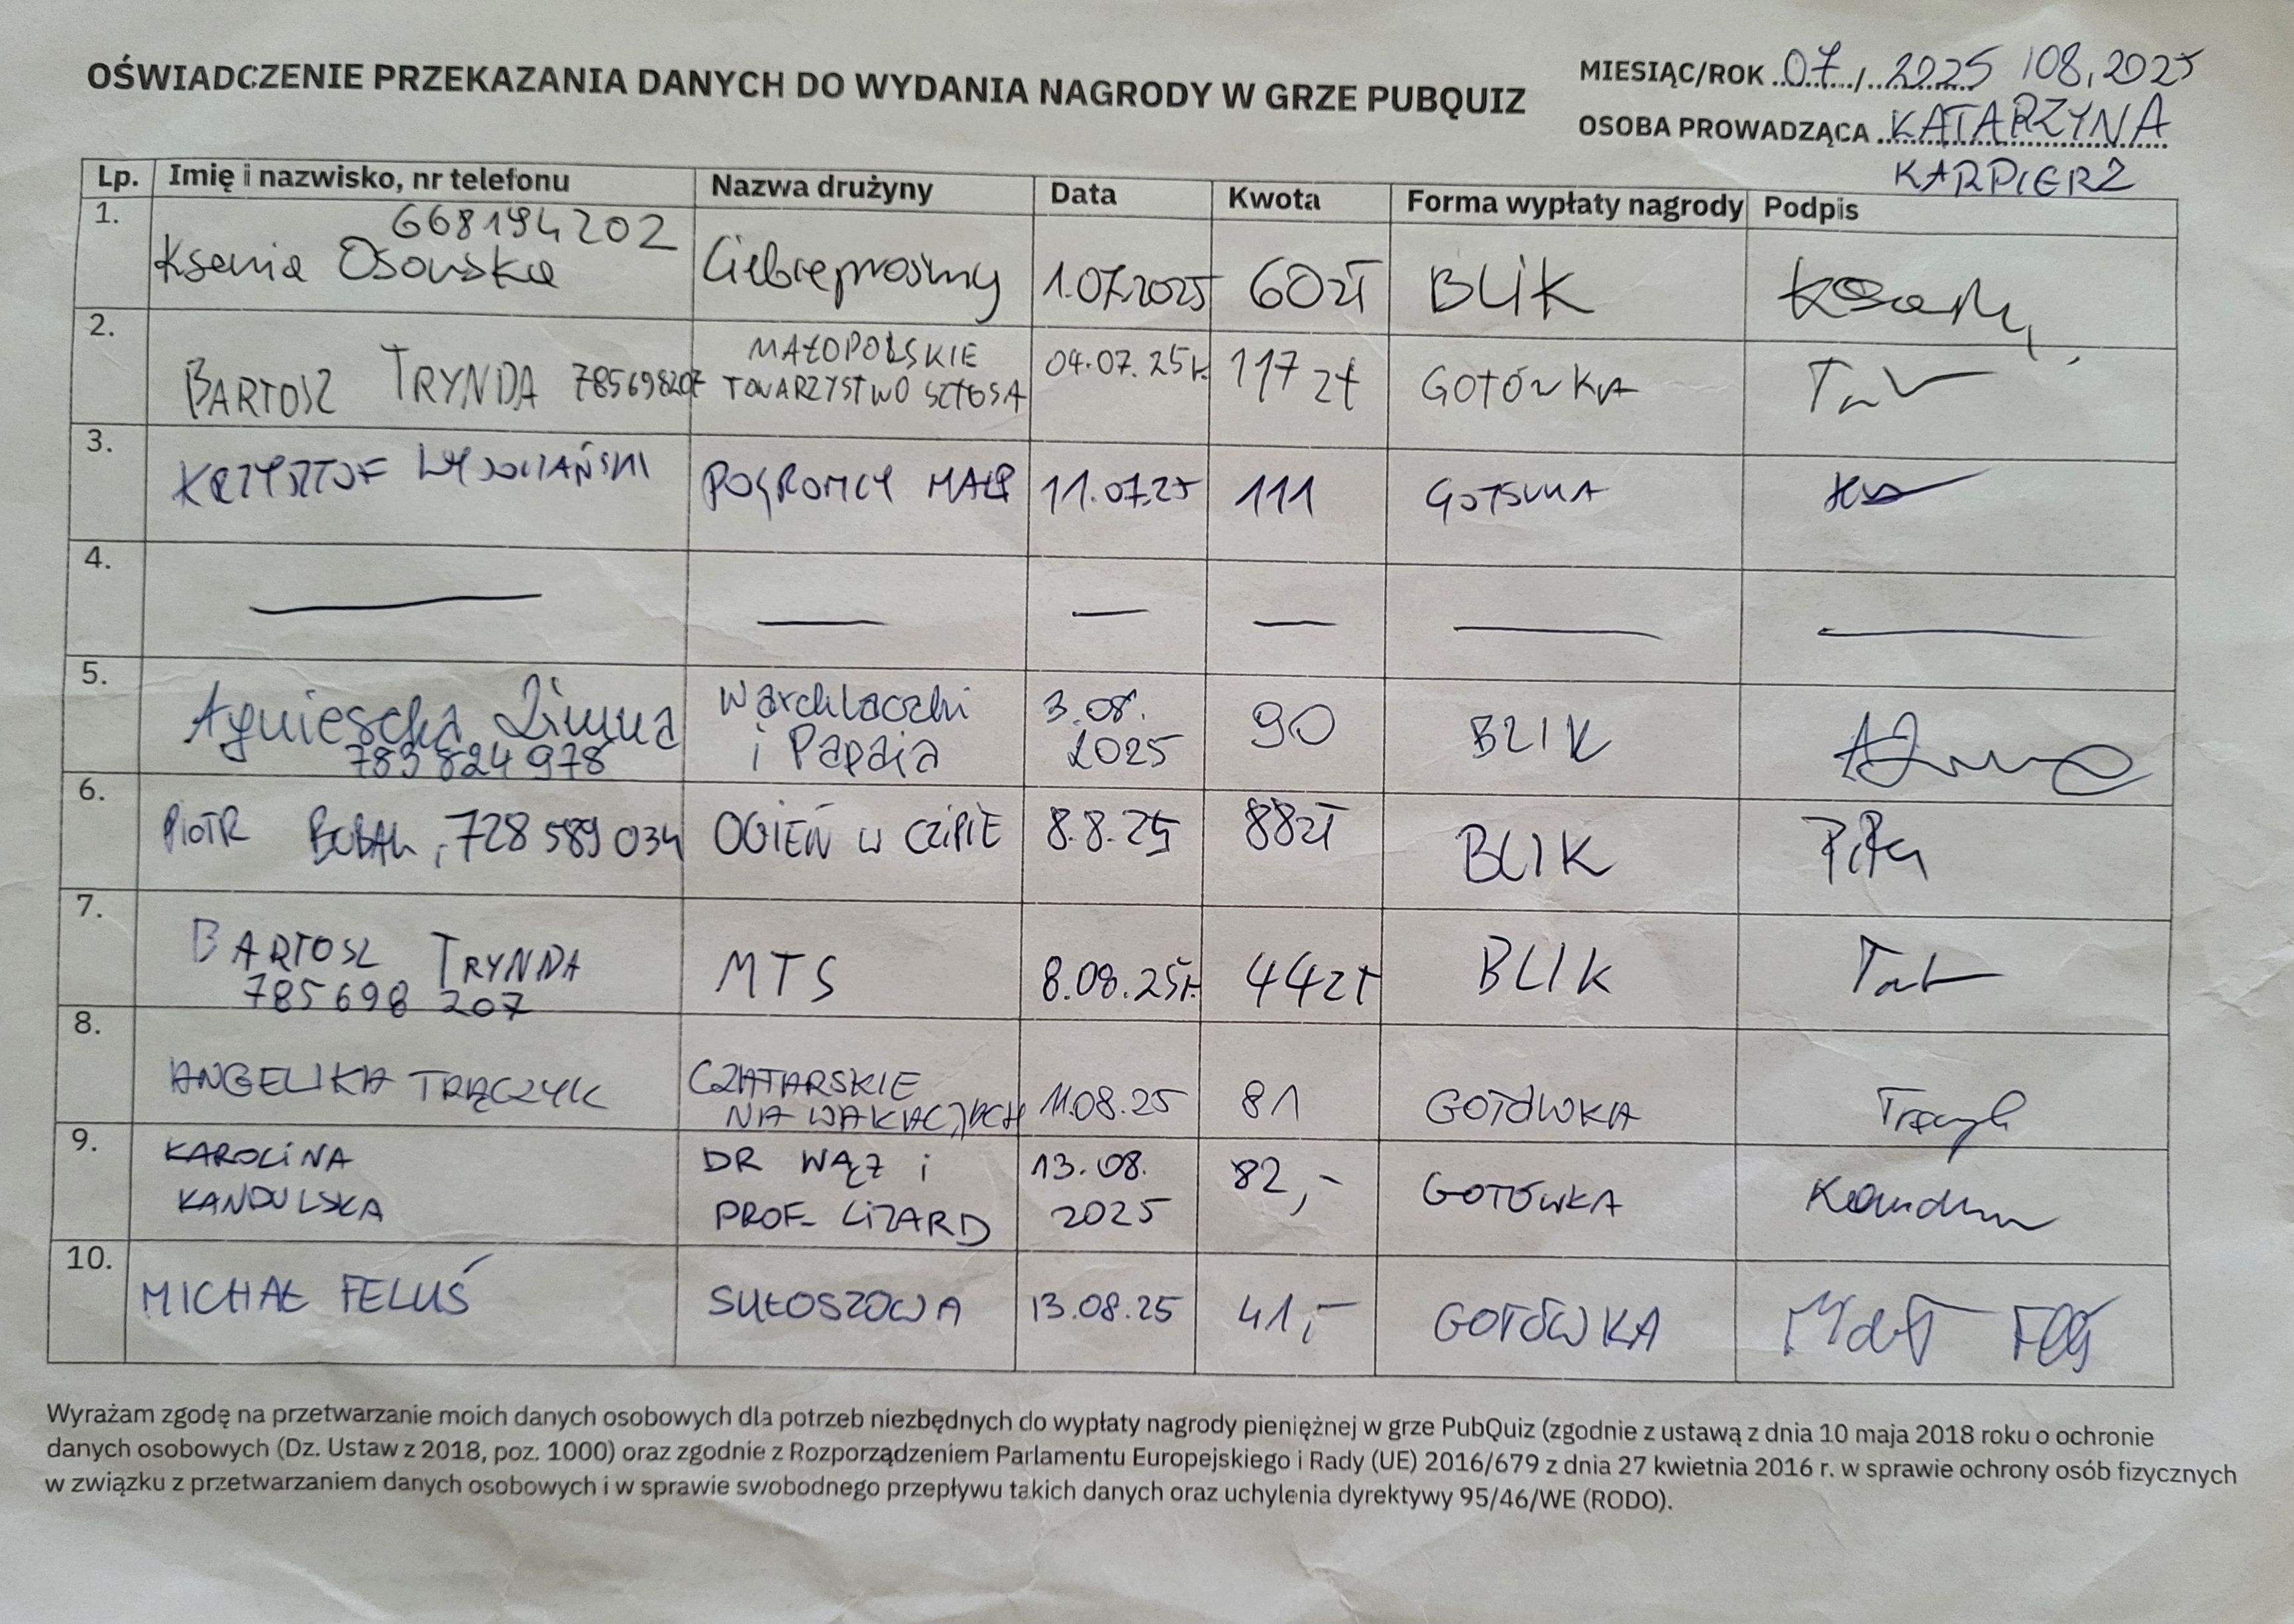 OŚWIADCZENIE PRZEKAZANIA DANYCH DO WYDANIA NAGRODY W GRZE PUBQUIZ
MIESIĄC/ROK 07 / 2025 / 08, 2025
OSOBA PROWADZĄCA KATARZYNA
KARPIERZ
Lp. Imię i nazwisko, nr telefonu Nazwa drużyny Data Kwota Forma wypłaty nagrody Podpis
1. 668194202
Ksenia Osowska 1.07.2025 60zł BLIK
2. BARTOSZ TRYNDA 785698207 MAŁOPOLSKIE
TOWARZYSTWO SZTOSA 04.07.25r. 117 zł GOTÓWKA
3. KRZYSZTOF POGROMCY MAŁP 11.07.25 111 GOTÓWKA
4. — — — — — —
5. Agnieszka Zimna
783824978 Warchlaczki
i Papaja 3.08.
2025 90 BLIK
6. PIOTR 728 589 034 OGIEŃ W CZIPIE 8.8.25 88zł BLIK
7. BARTOSZ TRYNDA
785698 207 MTS 8.08.25r. 44zł BLIK
8. ANGELIKA TRĄCZYK CZATARSKIE
NA WAKACJACH 11.08.25 81 GOTÓWKA Trączyk
9. KAROLINA
KANDULSKA DR WĄŻ i
PROF. LIZARD 13.08.
2025 82,- GOTÓWKA
10. MICHAŁ FELUŚ SUŁOSZOWA 13.08.25 41,- GOTÓWKA
Wyrażam zgodę na przetwarzanie moich danych osobowych dla potrzeb niezbędnych do wypłaty nagrody pieniężnej w grze PubQuiz (zgodnie z ustawą z dnia 10 maja 2018 roku o ochronie
danych osobowych (Dz. Ustaw z 2018, poz. 1000) oraz zgodnie z Rozporządzeniem Parlamentu Europejskiego i Rady (UE) 2016/679 z dnia 27 kwietnia 2016 r. w sprawie ochrony osób fizycznych
w związku z przetwarzaniem danych osobowych i w sprawie swobodnego przepływu takich danych oraz uchylenia dyrektywy 95/46/WE (RODO).